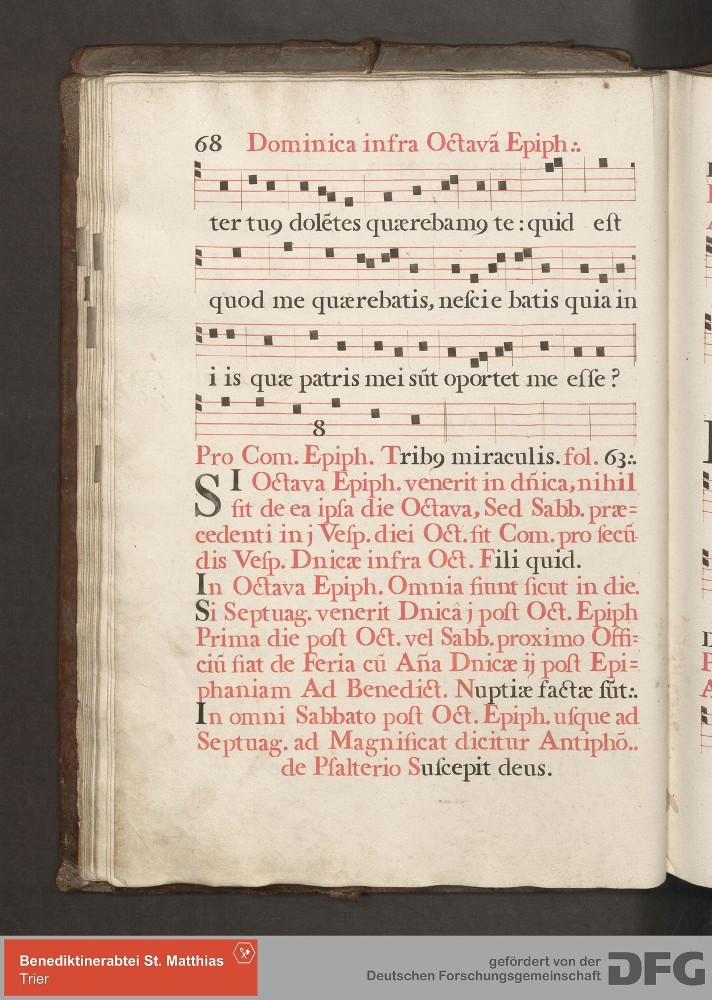 68 Dominica infra Octavã Epiph:.
ter tuꝯ dolẽtes quærebamꝯ te: quid eſt
quod me quærebatis, neſcie batis quia in
i is quæ patris mei sũt oportet me eſſe?
8
Pro Com. Epiph. Tribꝯ miraculis. fol. 63:.
SI Octava Epiph. venerit in dñica, nihil
fit de ea ipſa die Octava, Sed Sabb. præ=
cedenti in j Veſp. diei Oct. fit Com. pro ſecũ
dis Veſp. Dnicæ infra Oct. Fili quid.
In Octava Epiph. Omnia fiunt ſicut in die.
Si Septuag. venerit Dnicâ j poſt Oct. Epiph
Prima die poſt Oct. vel Sabb. proximo Offi=
ciũ fiat de Feria cũ Aña Dnicæ ij poſt Epi=
phaniam Ad Benedict. Nuptiæ factæ ſũt:.
In omni Sabbato poſt Oct. Epiph. uſque ad
Septuag. ad Magnificat dicitur Antiphõ..
de Pſalterio Suſcepit deus.
Benediktinerabtei St. Matthias
Trier
gefördert von der
Deutschen Forschungsgemeinschaft DFG